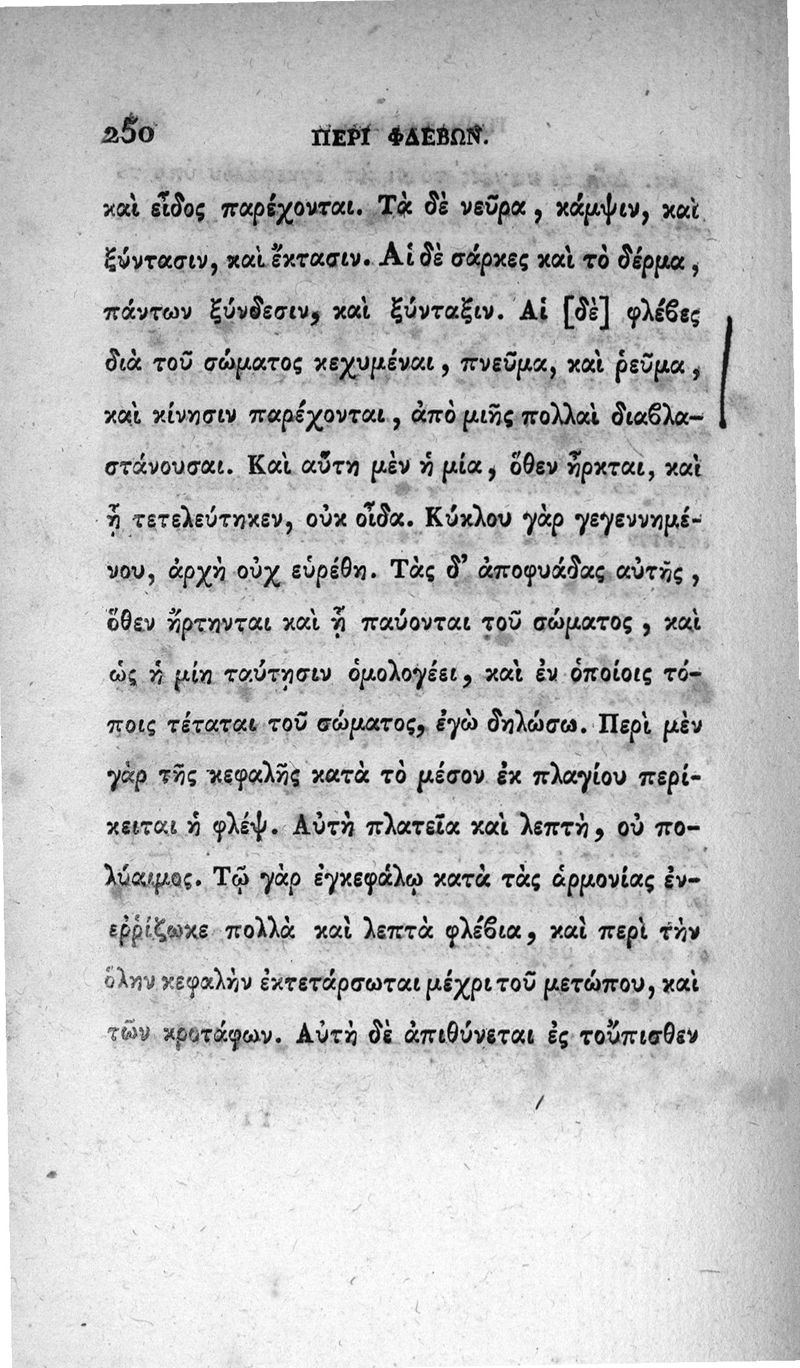 250 ΠΕΡΙ ΦΛΕΒΩΝ.
καὶ εἶδος παρέχονται. Τὰ δὲ νεῦρα, κάμψιν, καὶ
ξύντασιν, καὶ ἔκτασιν. Αἱ δὲ σάρκες καὶ τὸ δέρμα,
πάντων ξύνδεσιν, καὶ ξύνταξιν. Αἱ [δὲ] φλέϐες
διὰ τοῦ σώματος κεχυμέναι, πνεῦμα, καὶ ῥεῦμα,
καὶ κίνησιν παρέχονται, ἀπὸ μιῆς πολλαὶ διαϐλα-
στάνουσαι. Καὶ αὕτη μὲν ἡ μία, ὅθεν ἦρκται, καὶ
ᾗ τετελεύτηκεν, οὐκ οἶδα. Κύκλου γὰρ γεγεννημέ-
νου, ἀρχὴ οὐχ εὑρέθη. Τὰς δ’ ἀποφυάδας αὐτῆς,
ὅθεν ἤρτηνται καὶ ᾗ παύονται τοῦ σώματος, καὶ
ὡς ἡ μίη ταύτησιν ὁμολογέει, καὶ ἐν ὁποίοις τό-
ποις τέταται τοῦ σώματος, ἐγὼ δηλώσω. Περὶ μὲν
γὰρ τῆς κεφαλῆς κατὰ τὸ μέσον ἐκ πλαγίου περί-
κειται ἡ φλέψ. Αὐτὴ πλατεῖα καὶ λεπτὴ, οὐ πο-
λύαιμος. Τῷ γὰρ ἐγκεφάλῳ κατὰ τὰς ἁρμονίας ἐν-
εῤῥίζωκε πολλὰ καὶ λεπτὰ φλέϐια, καὶ περὶ τὴν
ὅλην κεφαλὴν ἐκτετάρσωται μέχρι τοῦ μετώπου, καὶ
τῶν κροτάφων. Αὐτὴ δὲ ἀπιθύνεται ἐς τοὔπισθεν